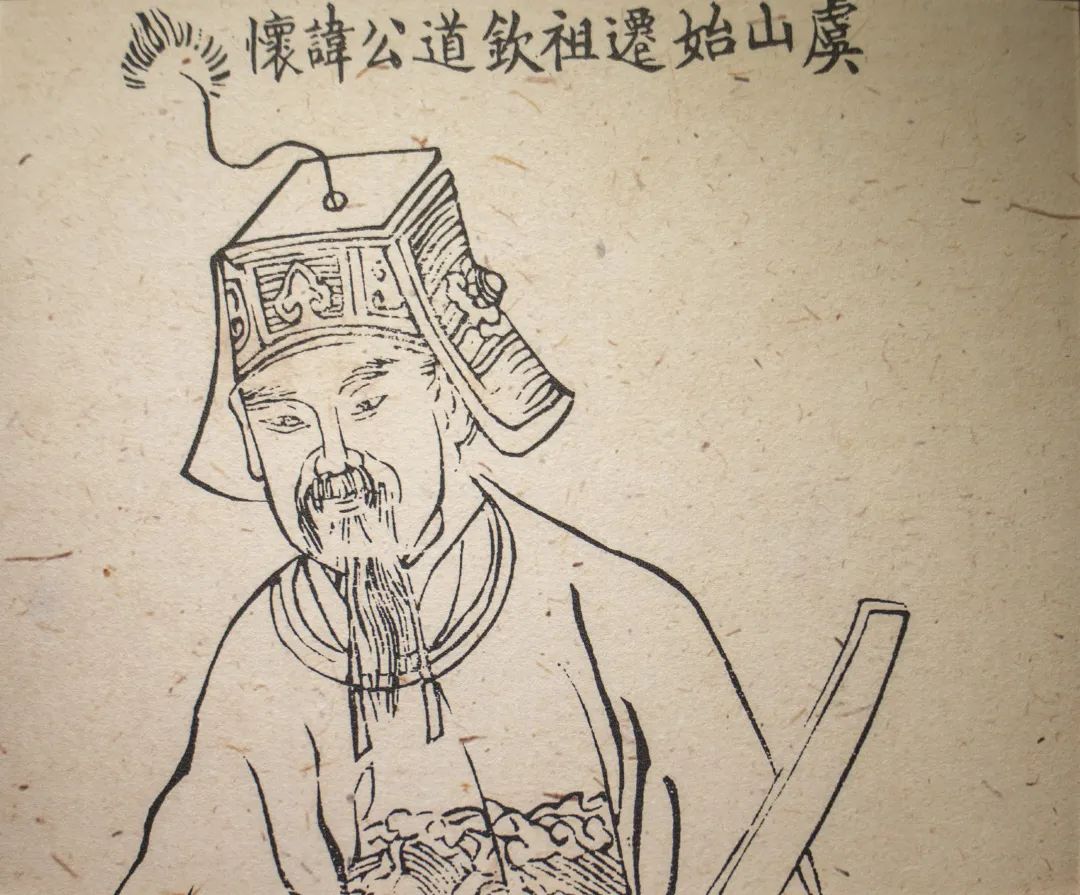 虞山始遷祖欽道公諱懷